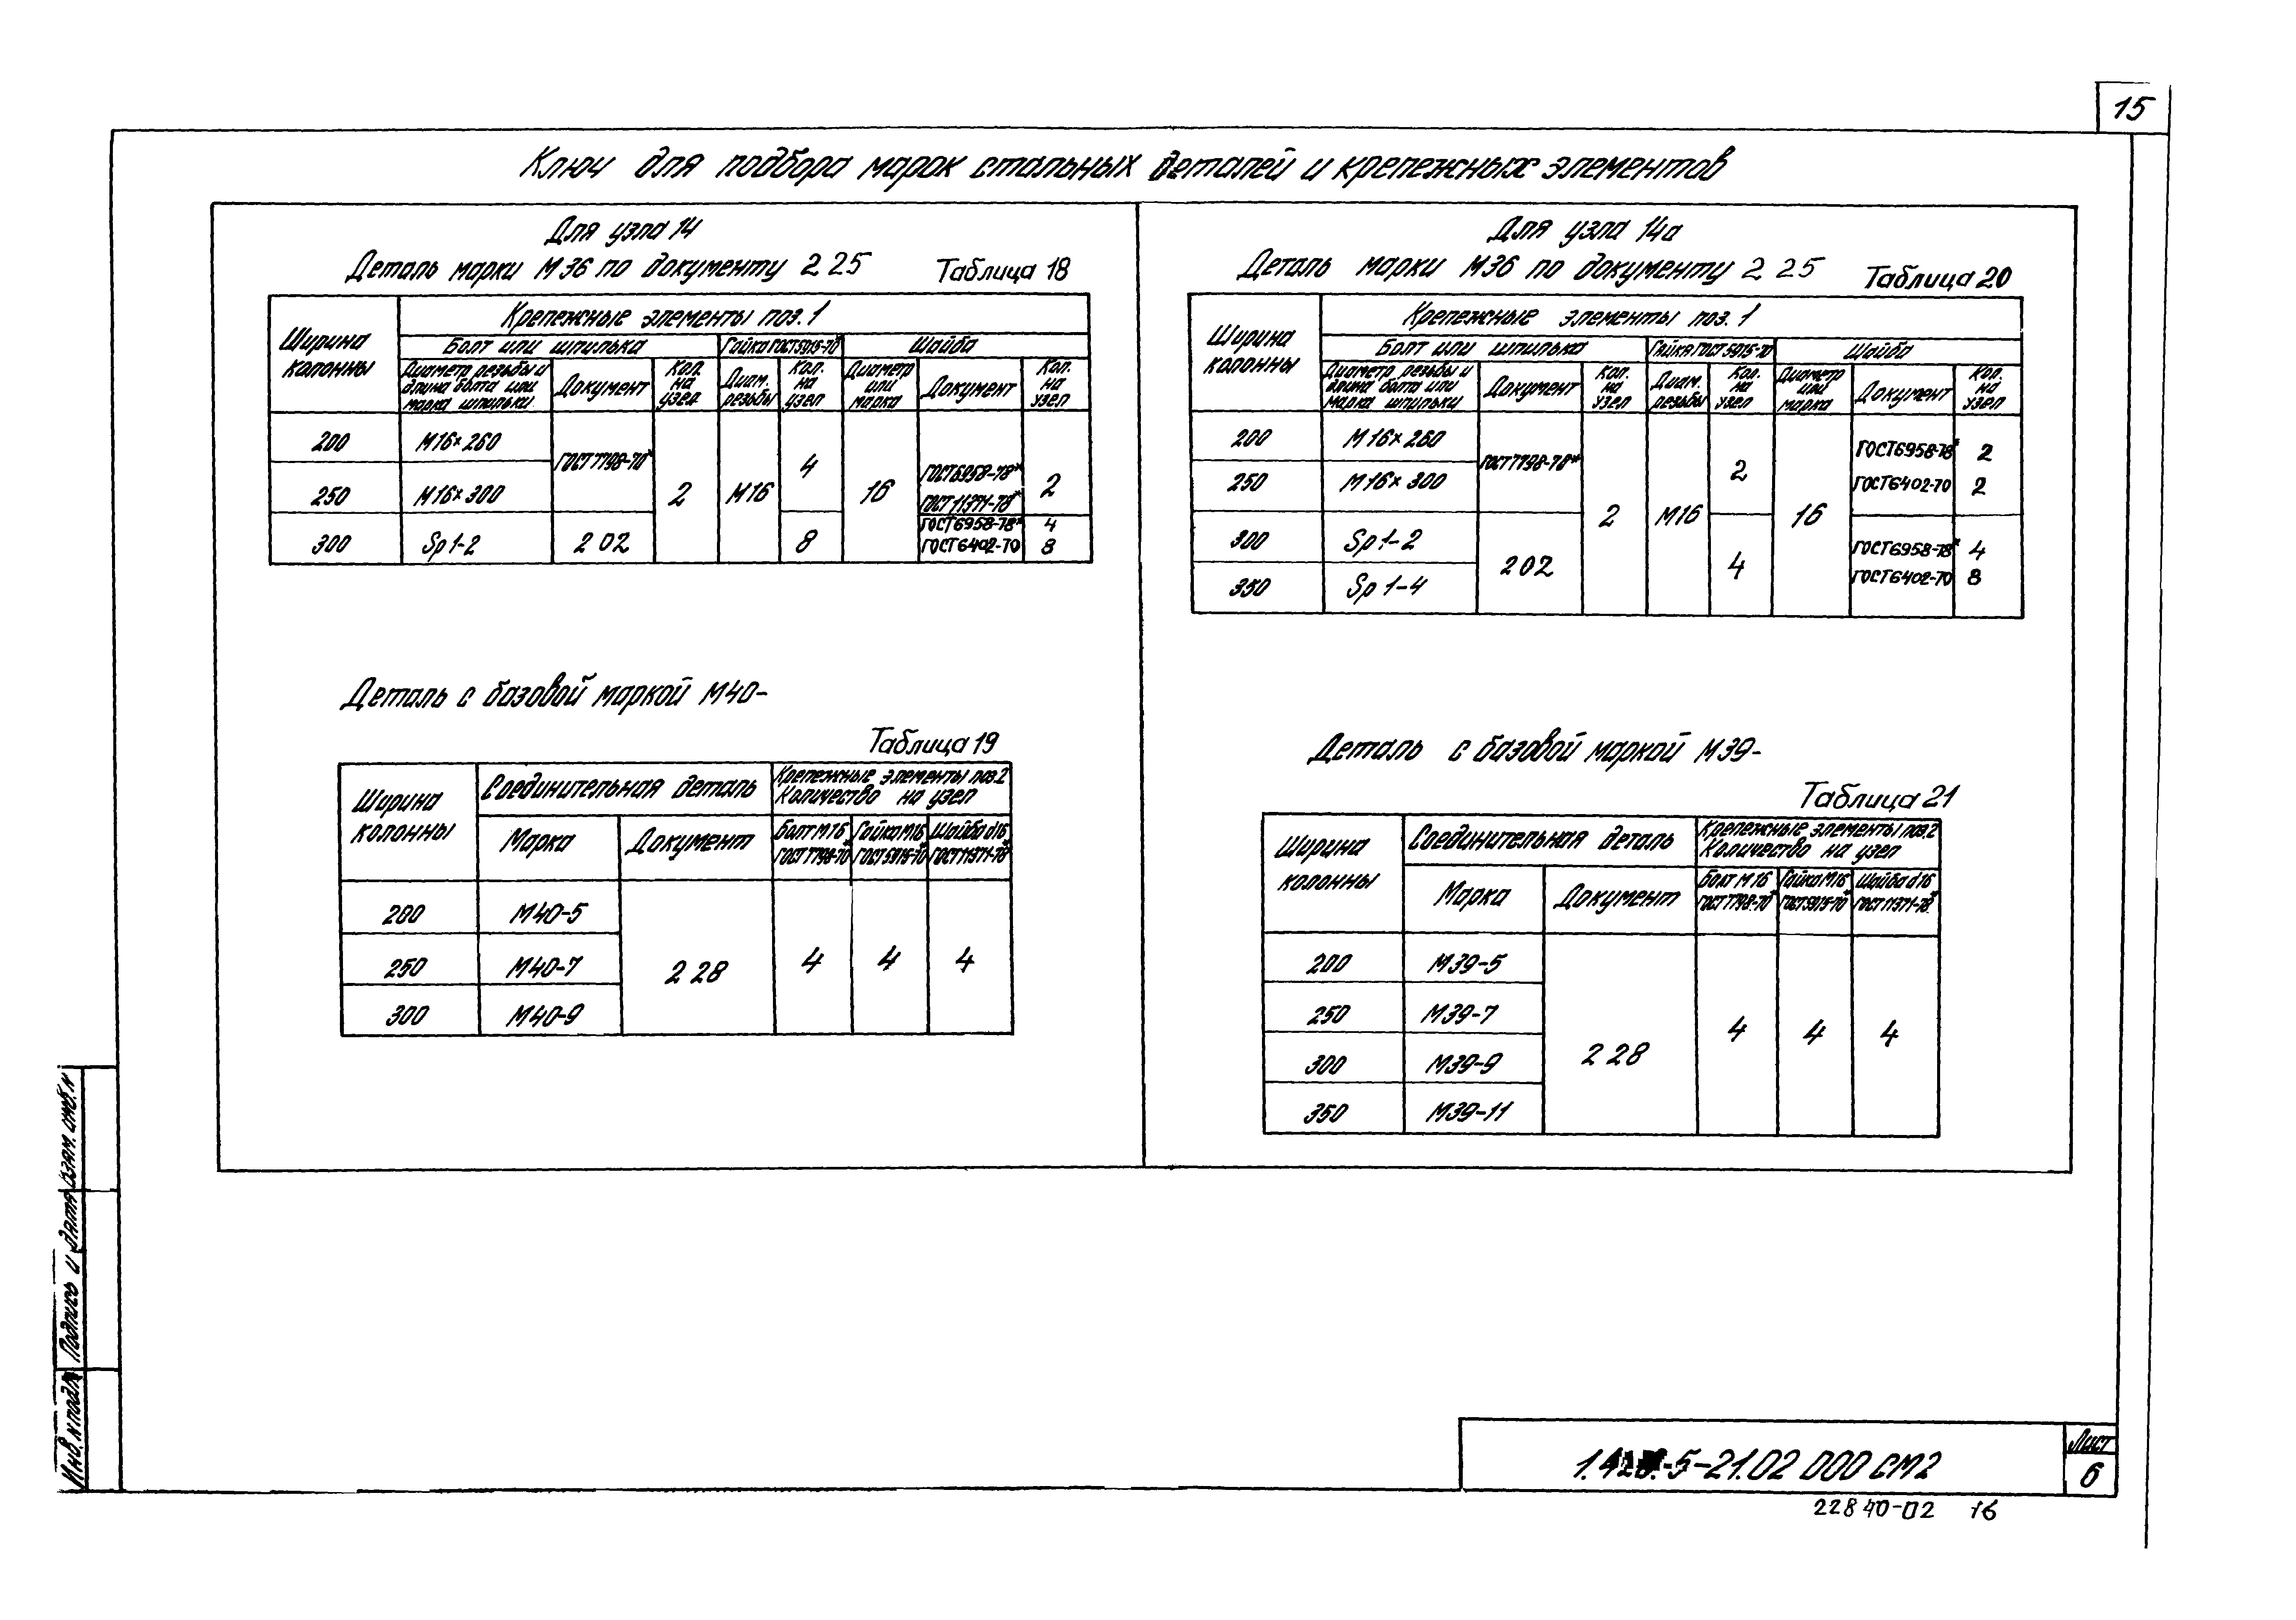 15
Ключ для подбора марок стальных деталей и крепежных элементов
Для узла 14
Деталь марки М36 по документу 2 25
Таблица 18
Ширина колонны
Крепежные элементы поз. 1
Болт или шпилька
Гайка ГОСТ 5915-70*
Шайба
Диаметр резьбы и длина болта или марка шпильки
Документ
Кол. на узел
Диам. резьбы
Кол. на узел
Диаметр или марка
Документ
Кол. на узел
200 М16×260 ГОСТ 7798-70* 2 М16 4 16 ГОСТ6958-78* ГОСТ 11371-78* 2
250 М16×300
300 Sp 1-2 2 02 8 ГОСТ6958-78* 4
ГОСТ6402-70 8
Деталь с базовой маркой М40-
Таблица 19
Ширина колонны
Соединительная деталь
Крепежные элементы поз.2
Количество на узел
Марка
Документ
Болт М16 ГОСТ 7798-70*
Гайка М16 ГОСТ 5915-70*
Шайба d16 ГОСТ 11371-78*
200 М40-5
250 М40-7 2 28 4 4 4
300 М40-9
Для узла 14а
Деталь марки М36 по документу 2 25
Таблица 20
Ширина колонны
Крепежные элементы поз. 1
Болт или шпилька
Гайка ГОСТ 5915-70
Шайба
Диаметр резьбы и длина болта или марка шпильки
Документ
Кол. на узел
Диам. резьбы
Кол. на узел
Диаметр или марка
Документ
Кол. на узел
200 М16×260 ГОСТ7798-78* 2 М16 2 16 ГОСТ6958-78* 2
250 М16×300 ГОСТ6402-70 2
300 Sp 1-2 2 02 4 ГОСТ6958-78* 4
350 Sp 1-4 ГОСТ6402-70 8
Деталь с базовой маркой М39-
Таблица 21
Ширина колонны
Соединительная деталь
Крепежные элементы поз.2
Количество на узел
Марка
Документ
Болт М16 ГОСТ 7798-70*
Гайка М16 ГОСТ 5915-70*
Шайба d16 ГОСТ 11371-78*
200 М39-5
250 М39-7 2 28 4 4 4
300 М39-9
350 М39-11
Инв. N подл.
Подпись и дата
Взам. инв. N
-5-21.02 000 СМ2
Лист
6
22840-02 16